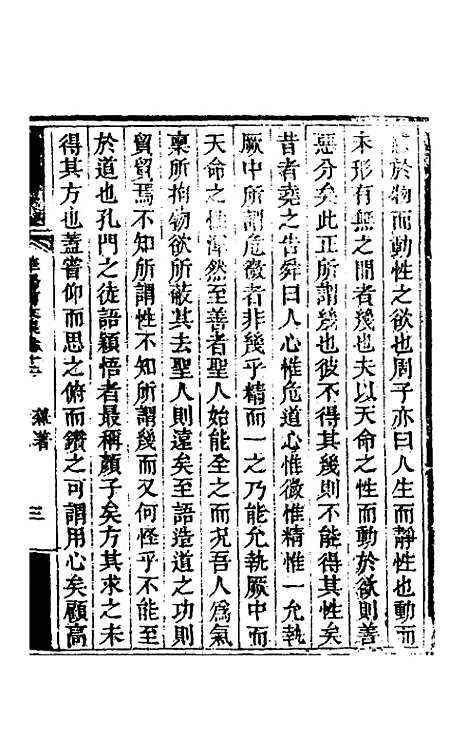 於物而動性之欲也周子亦曰人生而靜性也動而
未形有無之閒者幾也夫以天命之性而動於欲則善
惡分矣此正所謂幾也彼不得其幾則不能得其性矣
昔者堯之告舜曰人心惟危道心惟微惟精惟一允執
厥中所謂危微者非幾乎精而一之乃能允執厥中而
天命之性渾然至善者聖人始能全之而况吾人爲氣
稟所拘物欲所蔽其去聖人則遠矣至語造道之功則
貿貿焉不知所謂性不知所謂幾而又何怪乎不能至
於道也孔門之徒語穎悟者最稱顏子矣方其求之未
得其方也蓋嘗仰而思之俯而鑽之可謂用心矣顧高
雜著
三